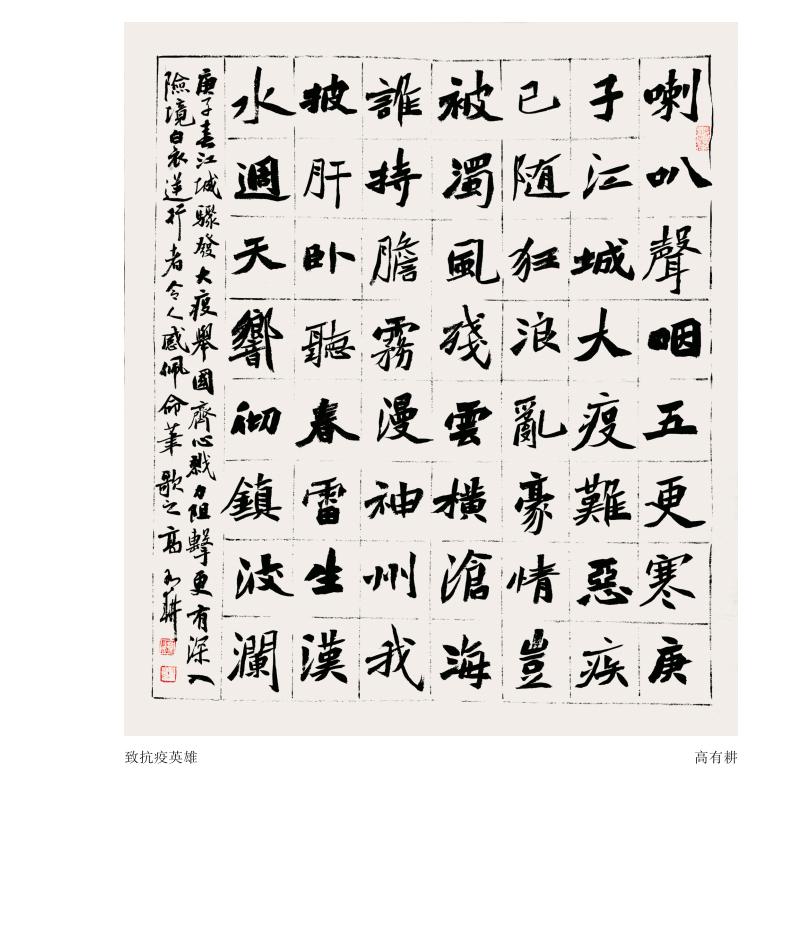 喇叭聲咽五更寒庚
子江城大疫難惡疾
已随狂浪亂豪情豈
被濁風殘雲橫滄海
誰持膽霧漫神州我
披肝卧聽春雷生漢
水週天響彻鎮波瀾
庚子春江城驟發大疫舉國齊心戮力阻擊更有深入
險境白衣逆行者令人感佩命筆歌之高有耕
致抗疫英雄
高有耕